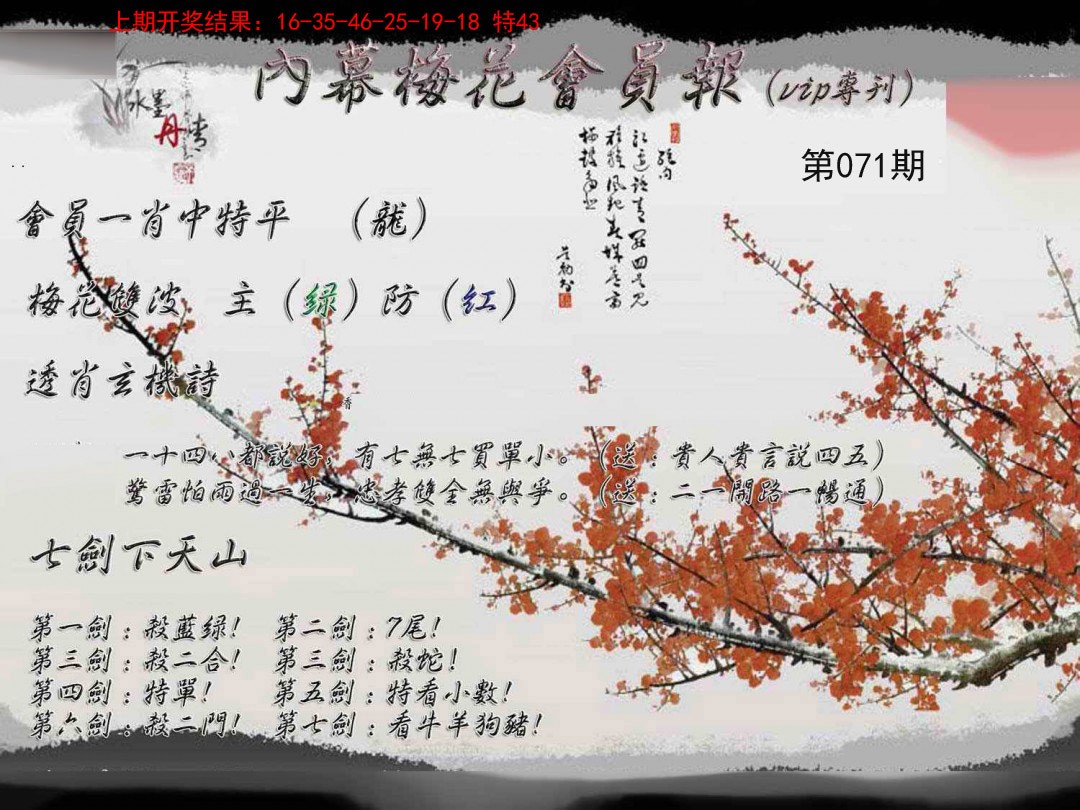 上期开奖结果：16-35-46-25-19-18 特43
內幕梅花會員報（vip專刊）
水墨丹青
第071期
會員一肖中特平 （龍）
梅花雙波 主（绿）防（红）
透肖玄機詩
香
一十四八都説好，有七無七買單小。（送：貴人貴言説四五）
驚雷怕雨過一生，忠孝雙全無與爭。（送：二一開路一暢通）
七劍下天山
第一劍：殺藍绿！ 第二劍：7尾！
第三劍：殺二合！ 第三劍：殺蛇！
第四劍：特單！ 第五劍：特看小數！
第六劍：殺二門！ 第七劍：看牛羊狗豬！